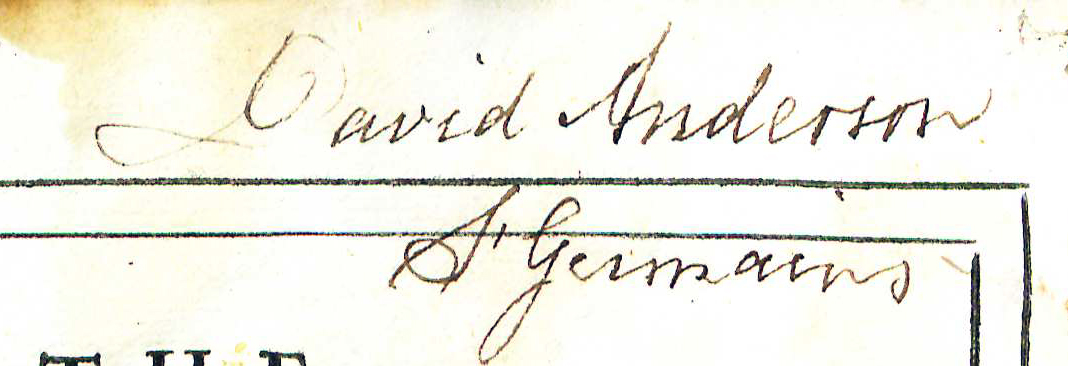 David Anderson
St Germains
THE